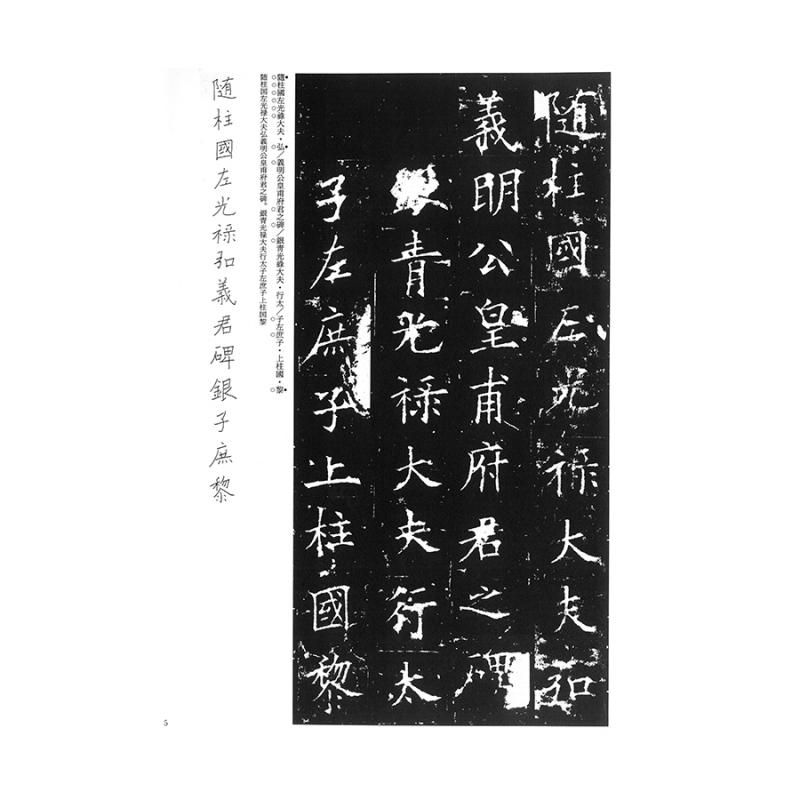 随柱國左光禄大夫弘
義明公皇甫府君之碑
銀青光禄大夫行太
子左庶子上柱國黎
隨柱國左光祿大夫・弘／義明公皇甫府君之碑／銀青光祿大夫・行太／子左庶子・上柱國・黎
随柱国左光禄大夫弘義明公皇甫府君之碑。銀青光禄大夫行太子左庶子上柱国黎
随柱國左光禄弘義君碑銀子庶黎
5